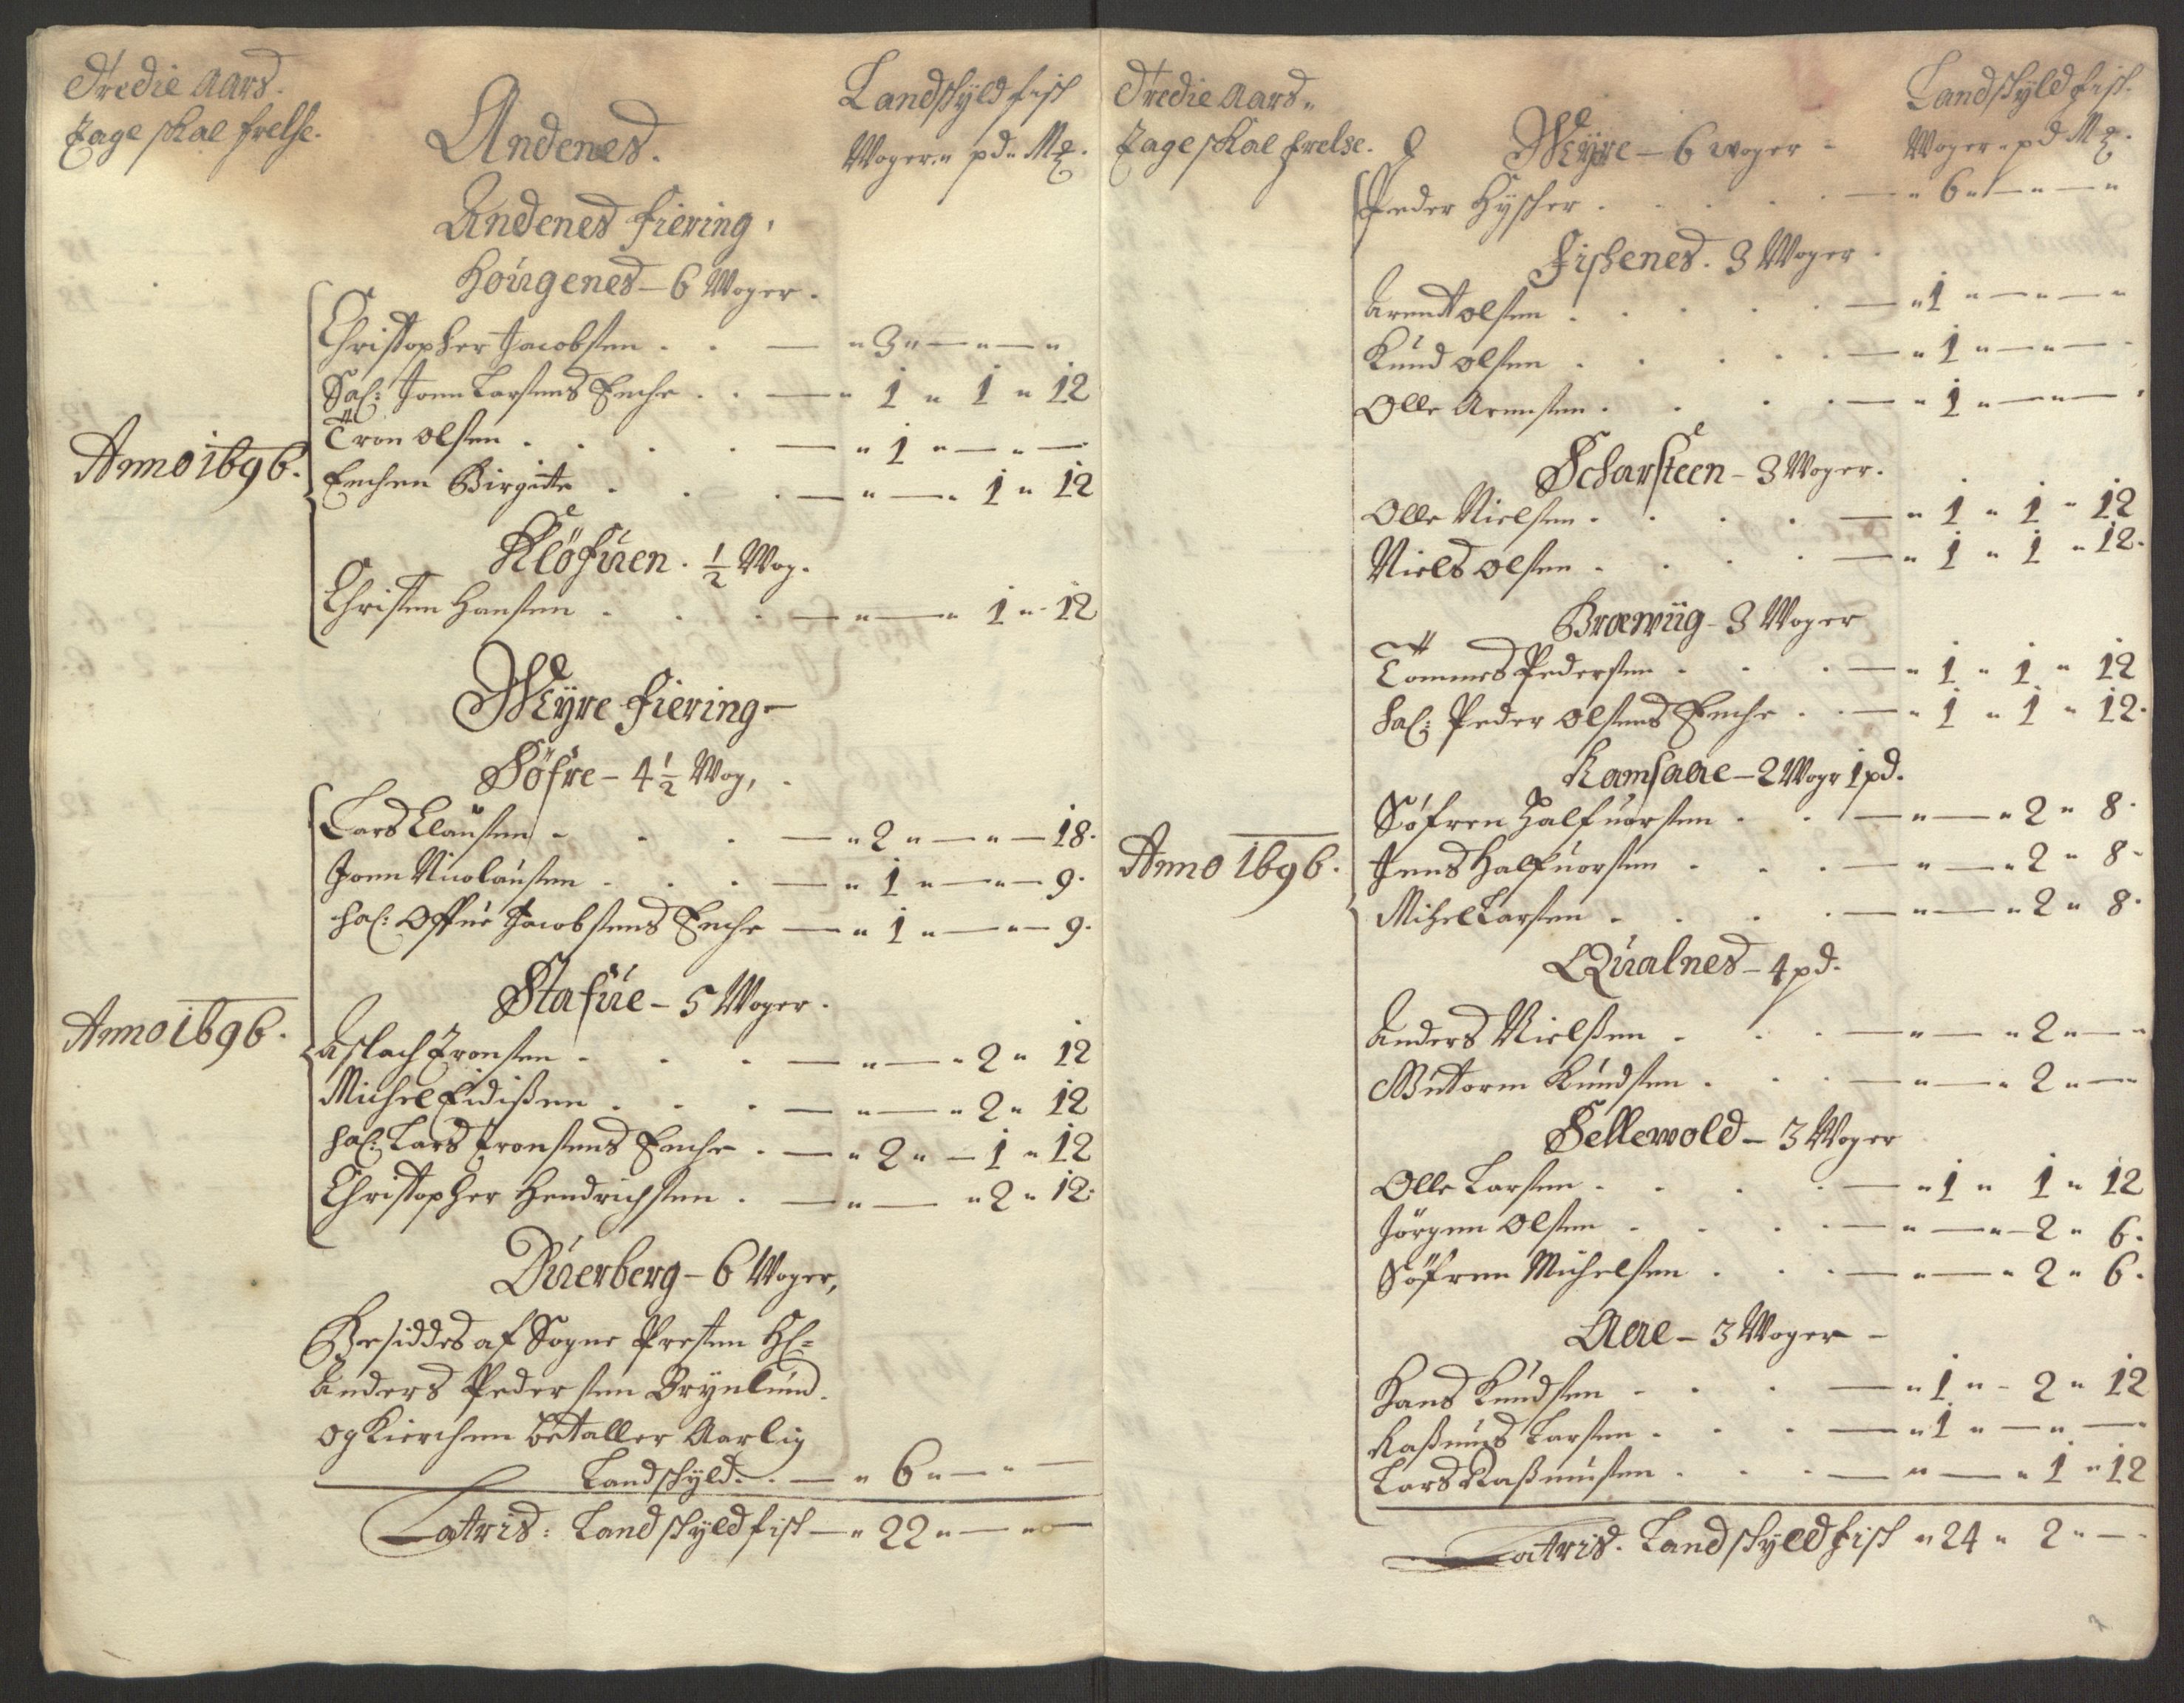 Tredie Aars
Tage skal frelse.
Andenes.
Landskyld fisk
Woger " pd " Mk.
Andenes fiering.
Hougenes – 6 Woger.
Christopher Jacobsen . . — " 3 " — " — "
Sal: Joen Larsens Enche . . — " 1 " 1 " 12
Tron Olsen . . . . — " 1 " — " —
Enchen Birgitte . . . — " — " 1 " 12
Anno 1696.
Klöfuen . ½ Wog.
Christen Hansen . . . — " — " 1 " 12
Meyre fiering –
Söfre – 4 ½ Wog,
Lars Clausen . . . — " 2 " — " — 18.
Joen Nicolausen . . . — " 1 " — " — 9.
Sal: Offue Jacobsens Enche — " 1 " — " — 9.
Stafüe – 5 Woger.
Anno 1696.
Aslach Tronsen . . . — " — " 2 " 12
Michel Eidissen . . . — " — " 2 " 12
Sal: Lars Tronsens Enche . — " 2 " — 1 " 12
Christopher Hendrichsen . — " — " 2 " 12.
Düerberg – 6 Woger,
Besiddes af Sogne Presten Hl=
Anders Pedersen Brynlund.
og Kierchen betaller Aarlig
Landskyld . . — " 6 " — " —
Latris: Landskyld fisk — " 22 " — " —
Tredie Aars "
Tage skal frelse.
Landskyld fisk.
Meyre – 6 Woger –
Woger " pd Mk.
Peder Hysher . . . . . — " 6 " — " — "
Fishenes. 3 Woger.
Arendt Olsen . . . . . — " 1 " — " — "
Knud Olsen . . . . . — " 1 " — " — "
Olle Arensen . . . . — " 1 " — " —
Scharsteen – 3 Woger.
Olle Nielsen . . . . — " 1 " 1 " 12
Niels Olsen . . . . — " 1 " 1 " 12.
Bræwiig – 3 Woger
Tommes Pedersen . . . — " 1 " 1 " 12
Sal: Peder Olsens Enche . . — " 1 " 1 " 12.
Ramsaae – 2 Woger 1 pd.
Anno 1696.
Söfren Halfuorsen . . — " — " 2 " 8.
Jens Halfuorsen . . . — " — " 2 " 8.
Mihel Larsen . . . . — " — " 2 " 8.
Qualnes – 4 pd.
Anders Nielsen . . . — " — " 2 " — "
Guttorm Knudsen . . . — " — " 2 " —
Sellewold – 3 Woger
Olle Larsen . . . . — " 1 " 1 " 12
Jörgen Olsen . . . . — " — " 2 " 6.
Söfren Michelsen . . . — " — " 2 " 6.
Aae – 3 Woger –
Hans Knudsen . . . — " 1 " 2 " 12
Rasmus Larsen . . . — " 1 " — " —
Lars Rasmusen . . . — " — " 1 " 12
Latris. Landskyld fisk " 24 " 2 " —